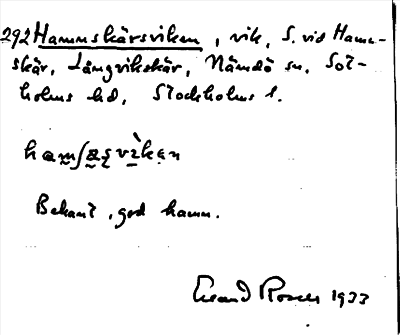 292 Hamnskärsviken, vik, S. vid Hamn-
skär, Långvikskär, Nämdö sn, Sot-
holms hd, Stockholms l.
Bekant, god hamn.
1933